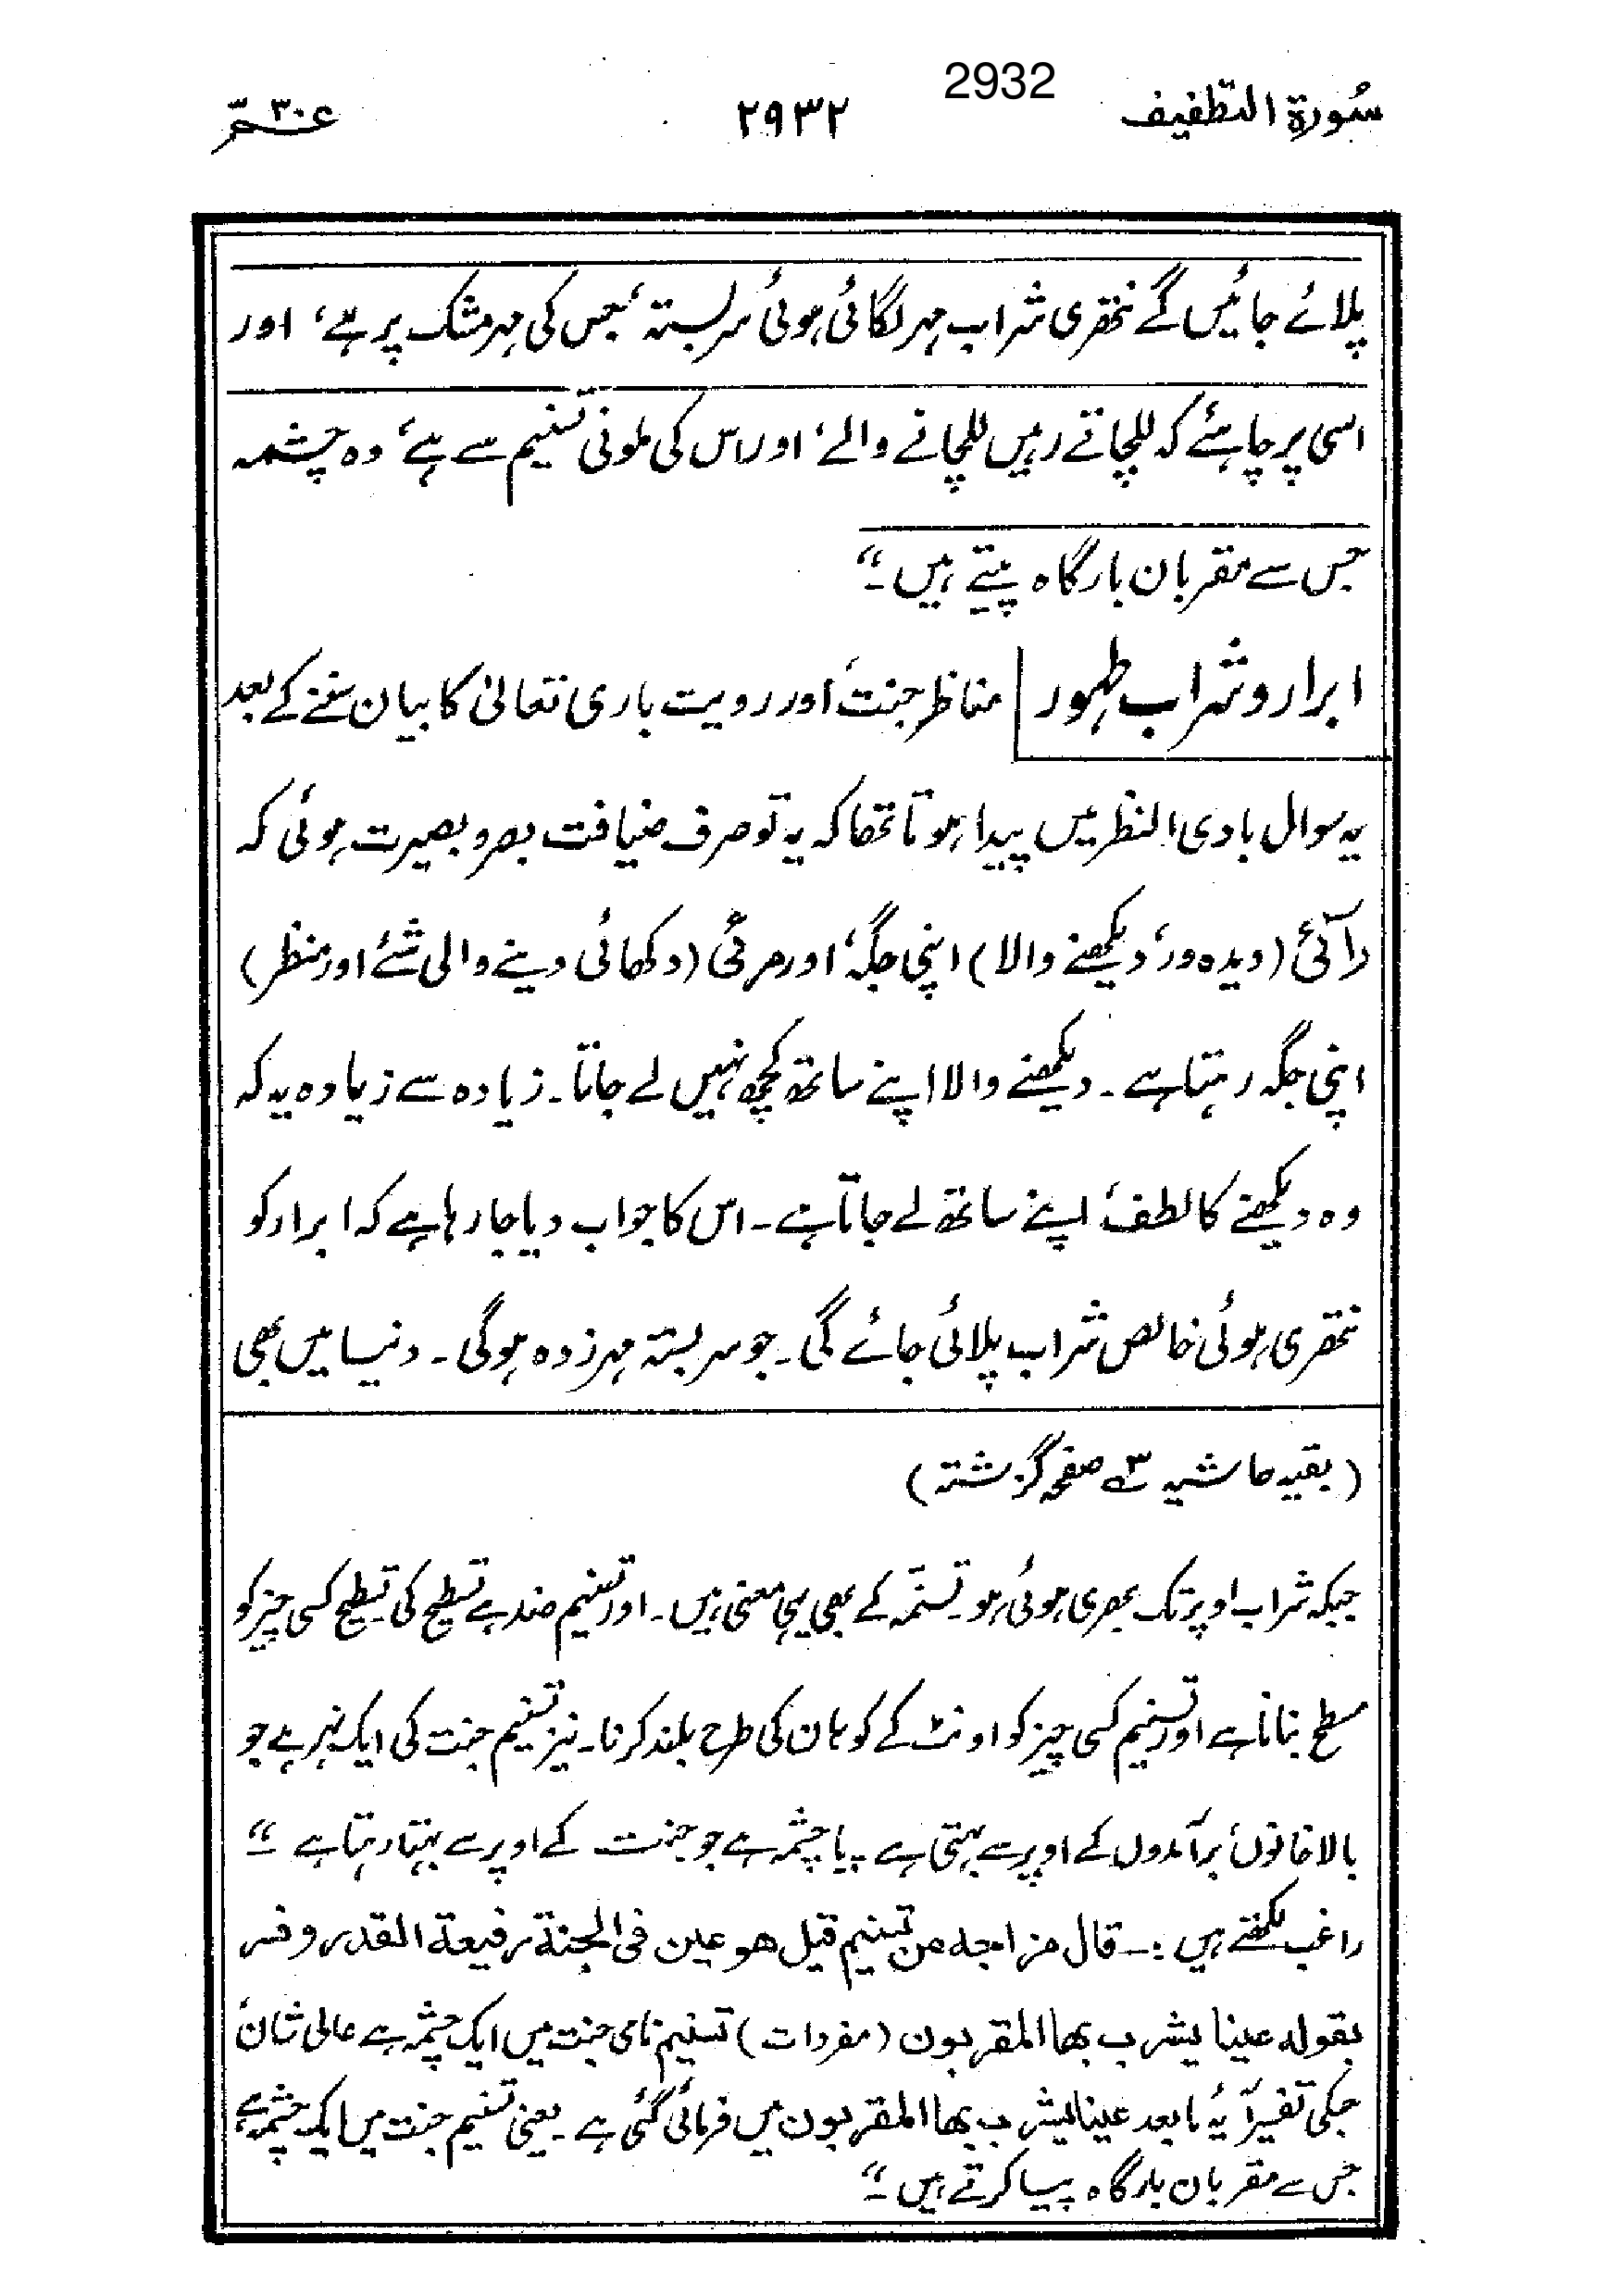 سُورۃ التطفیف ۲۹۳۲ 2932 عمّ ۳۰
پلائے جائیں گے نتھری شراب مہر لگائی ہوئی سربستہ، جس کی مہر مشک پر ہے، اور
اسی پر چاہئے کہ للچاتے رہیں للچانے والے، اور اس کی ملونی تسنیم سے ہے، وہ چشمہ
جس سے مقربان بارگاہ پیتے ہیں۔“
ابرار و شراب طہور | مناظر جنت، اور رویت باری تعالیٰ کا بیان سننے کے بعد
یہ سوال بادی النظر میں پیدا ہوتا تھا کہ یہ تو صرف ضیافت بصر و بصیرت ہوئی کہ
رآئی (دیدہ ور، دیکھنے والا) اپنی جگہ، اور مرئی (دکھائی دینے والی شئے اور منظر)
اپنی جگہ رہتا ہے۔ دیکھنے والا اپنے ساتھ کچھ نہیں لے جاتا۔ زیادہ سے زیادہ یہ کہ
وہ دیکھنے کا لطف، اپنے ساتھ لے جاتا ہے۔ اس کا جواب دیا جا رہا ہے کہ ابرار کو
نتھری ہوئی خالص شراب پلائی جائے گی۔ جو سربستہ مہر زدہ ہوگی۔ دنیا میں بھی
(بقیہ حاشیہ ۳ صفحہ گزشتہ)
جبکہ شراب اوپر تک بھری ہوئی ہو۔ تسنّمہ کے بھی یہی معنی ہیں۔ اور تسنیم ضد ہے تسطیح کی۔ تسطیح کسی چیز کو
مسطح بنانا ہے اور تسنیم کسی چیز کو اونٹ کے کوہان کی طرح بلند کرنا۔ نیز تسنیم جنت کی ایک نہر ہے جو
بالاخانوں، برآمدوں کے اوپر سے بہتی ہے۔ یا چشمہ ہے جو جنت کے اوپر سے بہتا رہتا ہے۔“
راغب لکھتے ہیں :۔ قال مزاجہ من تسنیم قیل ھو عین فی الجنۃ رفیعۃ القدر وفسر
بقولہ عینا یشرب بھا المقربون (مفردات) تسنیم نامی جنت میں ایک چشمہ ہے عالی شان،
جسکی تفسیر آیۂ ما بعد عینا یشرب بھا المقربون میں فرمائی گئی ہے۔ یعنی تسنیم جنت میں ایک چشمہ ہے
جس سے مقربان بارگاہ پیا کرتے ہیں۔“